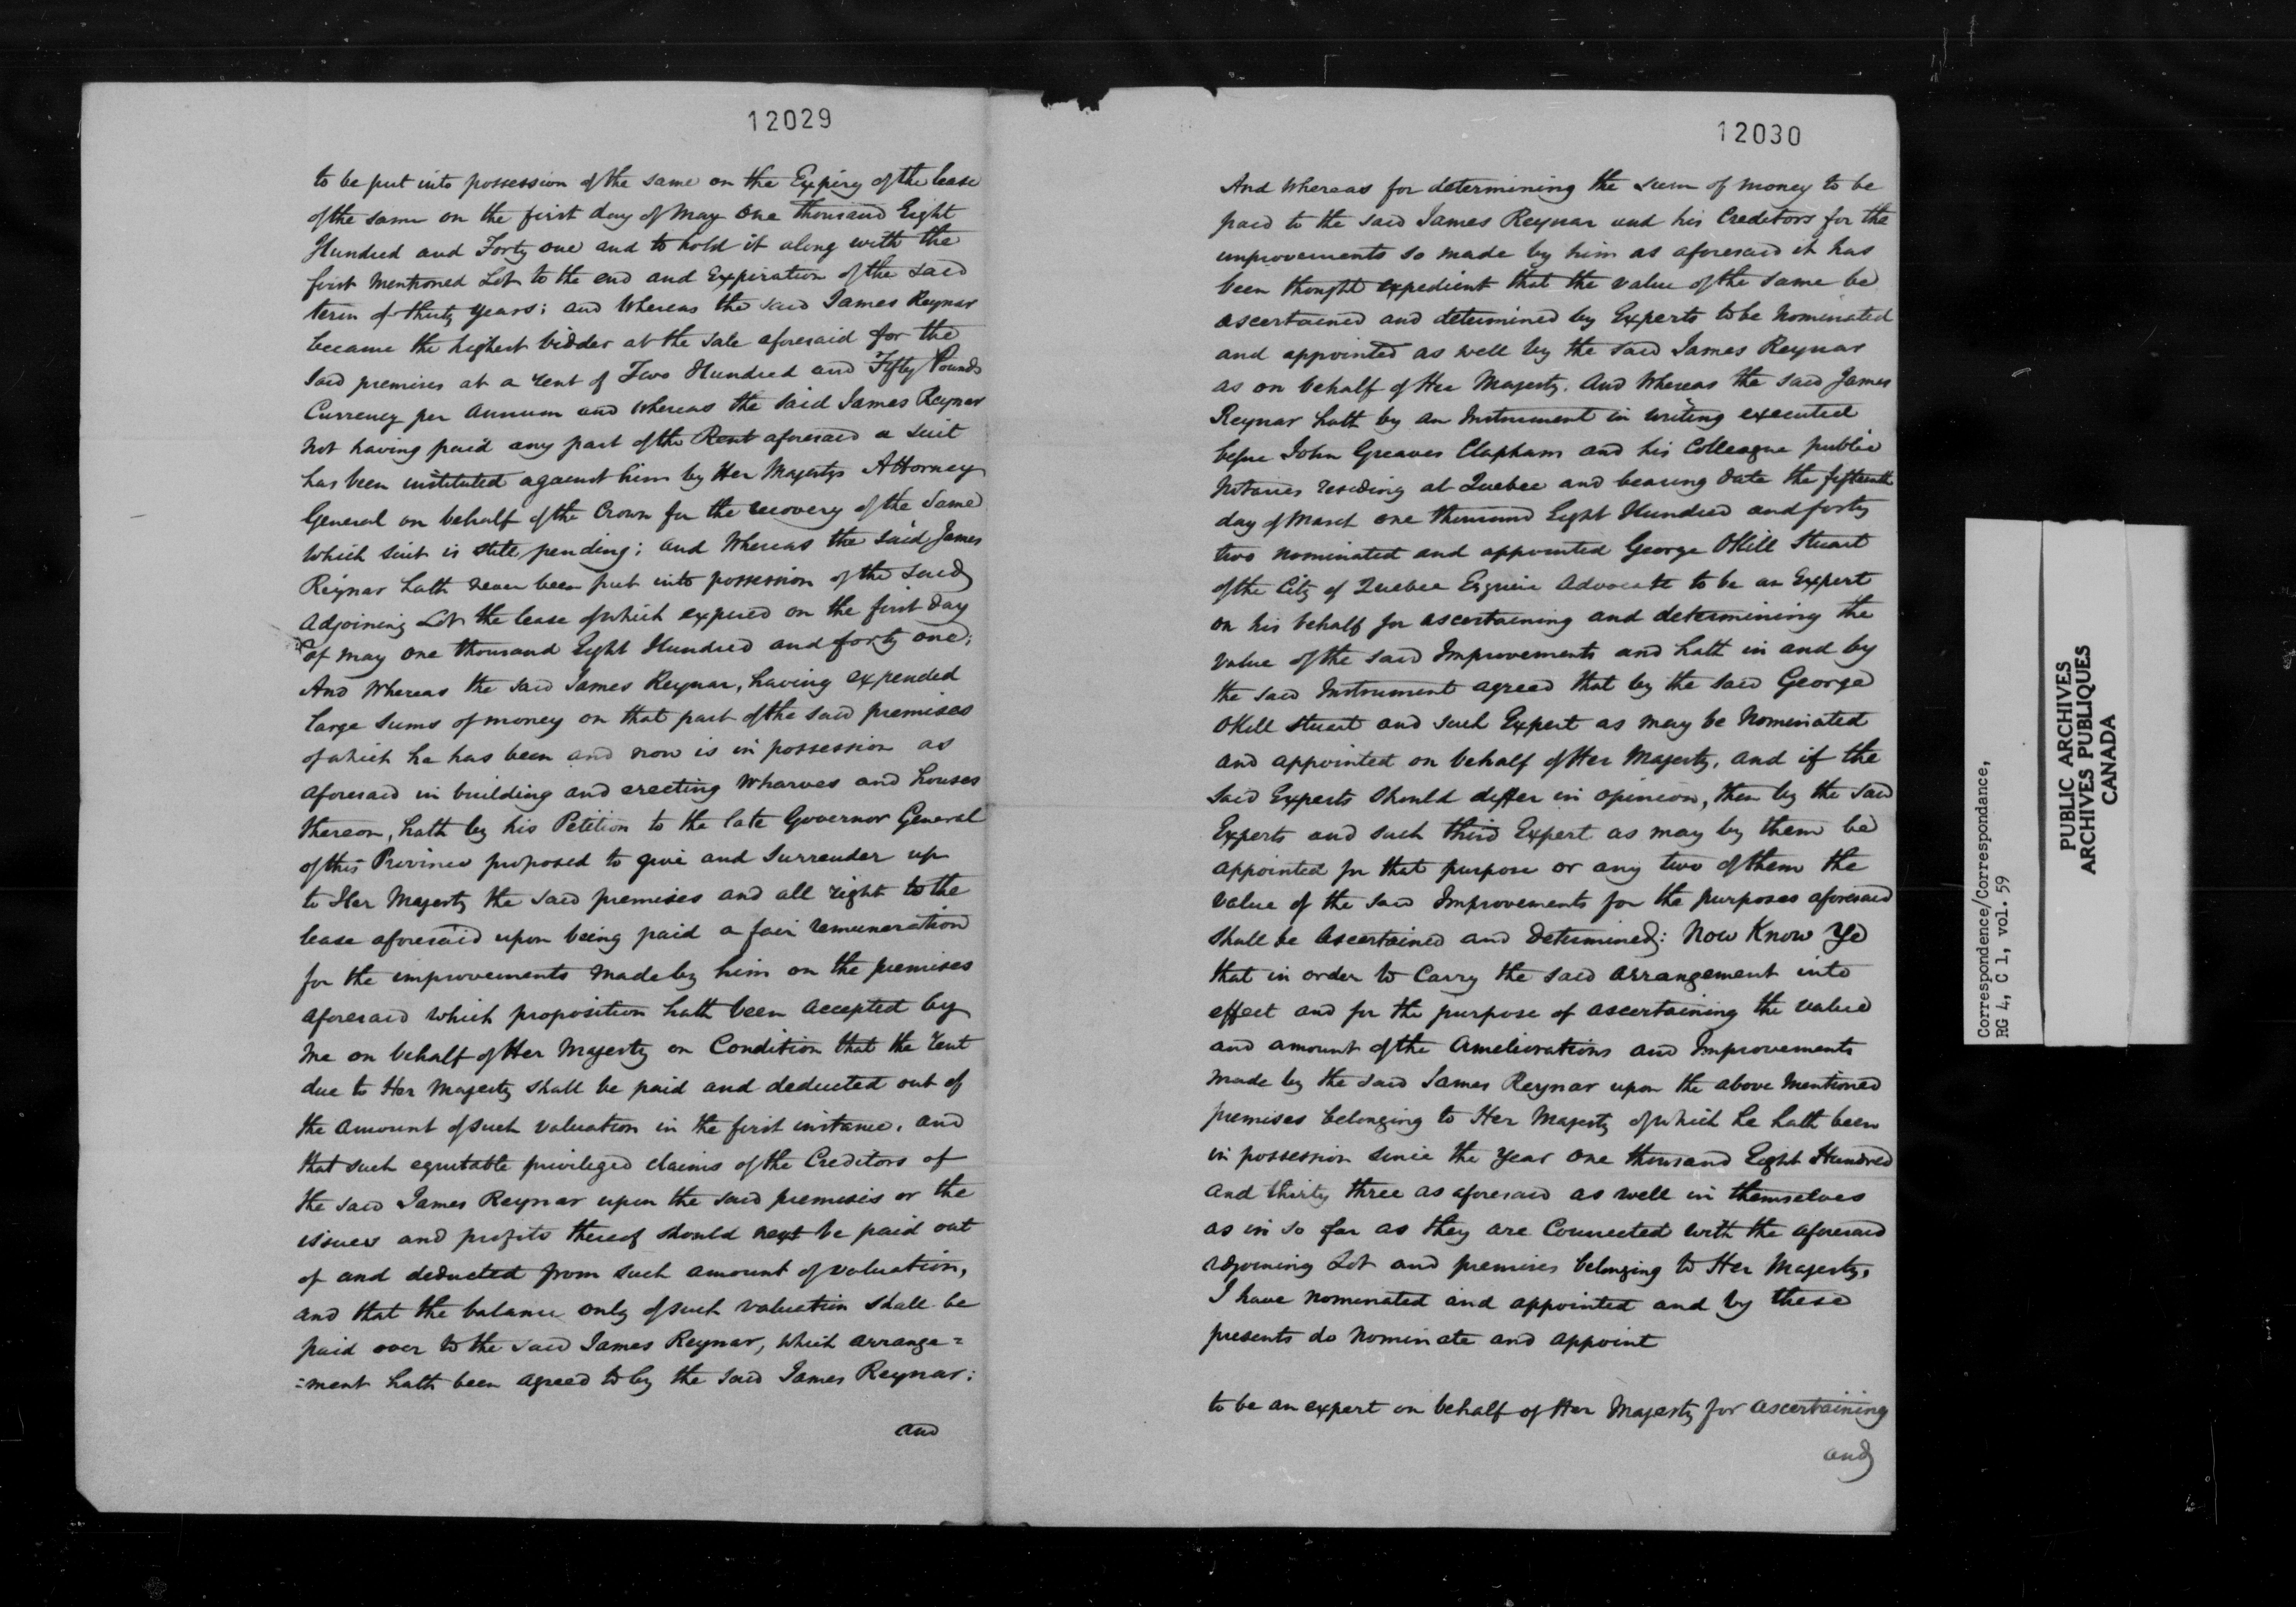 12029
to be put into possession of the same on the Expiry of the lease
of the same on the first day of May One thousand Eight
Hundred and Forty one and to hold it along with the
first Mentioned Lot to the end and Expiration of the said
term of thirty years; and Whereas the said James Reynar
became the highest bidder at the sale aforesaid for the
said premises at a rent of Two Hundred and Fifty Pounds
Currency per Annum and whereas the said James Reynar
not having paid any part of the Rent aforesaid a suit
has been instituted against him by Her Majestys Attorney
General on behalf of the Crown for the recovery of the same
which suit is still pending; and Whereas the said James
Reynar hath never been put into possession of the said
Adjoining Lot the lease of which expired on the first day
of May One thousand Eight Hundred and forty one;
And Whereas the said James Reynar, having expended
large sums of money on that part of the said premises
of which he has been and now is in possession as
aforesaid in building and erecting Wharves and houses
thereon, hath by his Petition to the late Governor General
of this Province proposed to give and Surrender up
to Her Majesty the said premises and all right to the
lease aforesaid upon being paid a fair remuneration
for the improvements made by him on the premises
aforesaid which proposition hath been accepted by
me on behalf of Her Majesty on Condition that the rent
due to Her Majesty shall be paid and deducted out of
the Amount of such valuation in the first instance, and
that such equitable privileged claims of the Creditors of
the said James Reynar upon the said premises or the
issues and profits thereof should next be paid out
of and deducted from such amount of valuation,
and that the balance only of such valuation shall be
paid over to the said James Reynar, which arrange=
=ment hath been agreed to by the said James Reynar;
and
12030
And Whereas for determining the sum of money to be
paid to the said James Reynar and his Creditors for the
improvements so made by him as aforesaid it has
been thought expedient that the value of the same be
ascertained and determined by Experts to be Nominated
and appointed as well by the said James Reynar
as on behalf of Her Majesty. And Whereas the said James
Reynar hath by an Instrument in writing executed
before John Greaves Clapham and his Colleague public
Notaries residing at Quebec and bearing date the fifteenth
day of March one thousand Eight Hundred and forty
two nominated and appointed George OKill Stuart
of the City of Quebec Esquire Advocate to be an Expert
on his behalf for ascertaining and determining the
value of the said Improvements and hath in and by
the said Instrument agreed that by the said George
OKill Stuart and such Expert as may be Nominated
and appointed on behalf of Her Majesty, and if the
said Experts should differ in opinion, then by the said
Experts and such third Expert as may by them be
appointed for that purpose or any two of them the
value of the said Improvements for the purposes aforesaid
shall be Ascertained and Determined: Now Know Ye
that in order to Carry the said Arrangement into
effect and for the purpose of ascertaining the value
and amount of the Ameliorations and Improvements
made by the said James Reynar upon the above Mentioned
premises belonging to Her Majesty of which he hath been
in possession since the Year One thousand Eight Hundred
and thirty three as aforesaid as well in themselves
as in so far as they are Connected with the aforesaid
adjoining Lot and premises belonging to Her Majesty,
I have nominated and appointed and by these
presents do Nominate and appoint
to be an expert on behalf of Her Majesty for ascertaining
and
Correspondence/Correspondance,
RG 4, C 1, vol. 59
PUBLIC ARCHIVES
ARCHIVES PUBLIQUES
CANADA